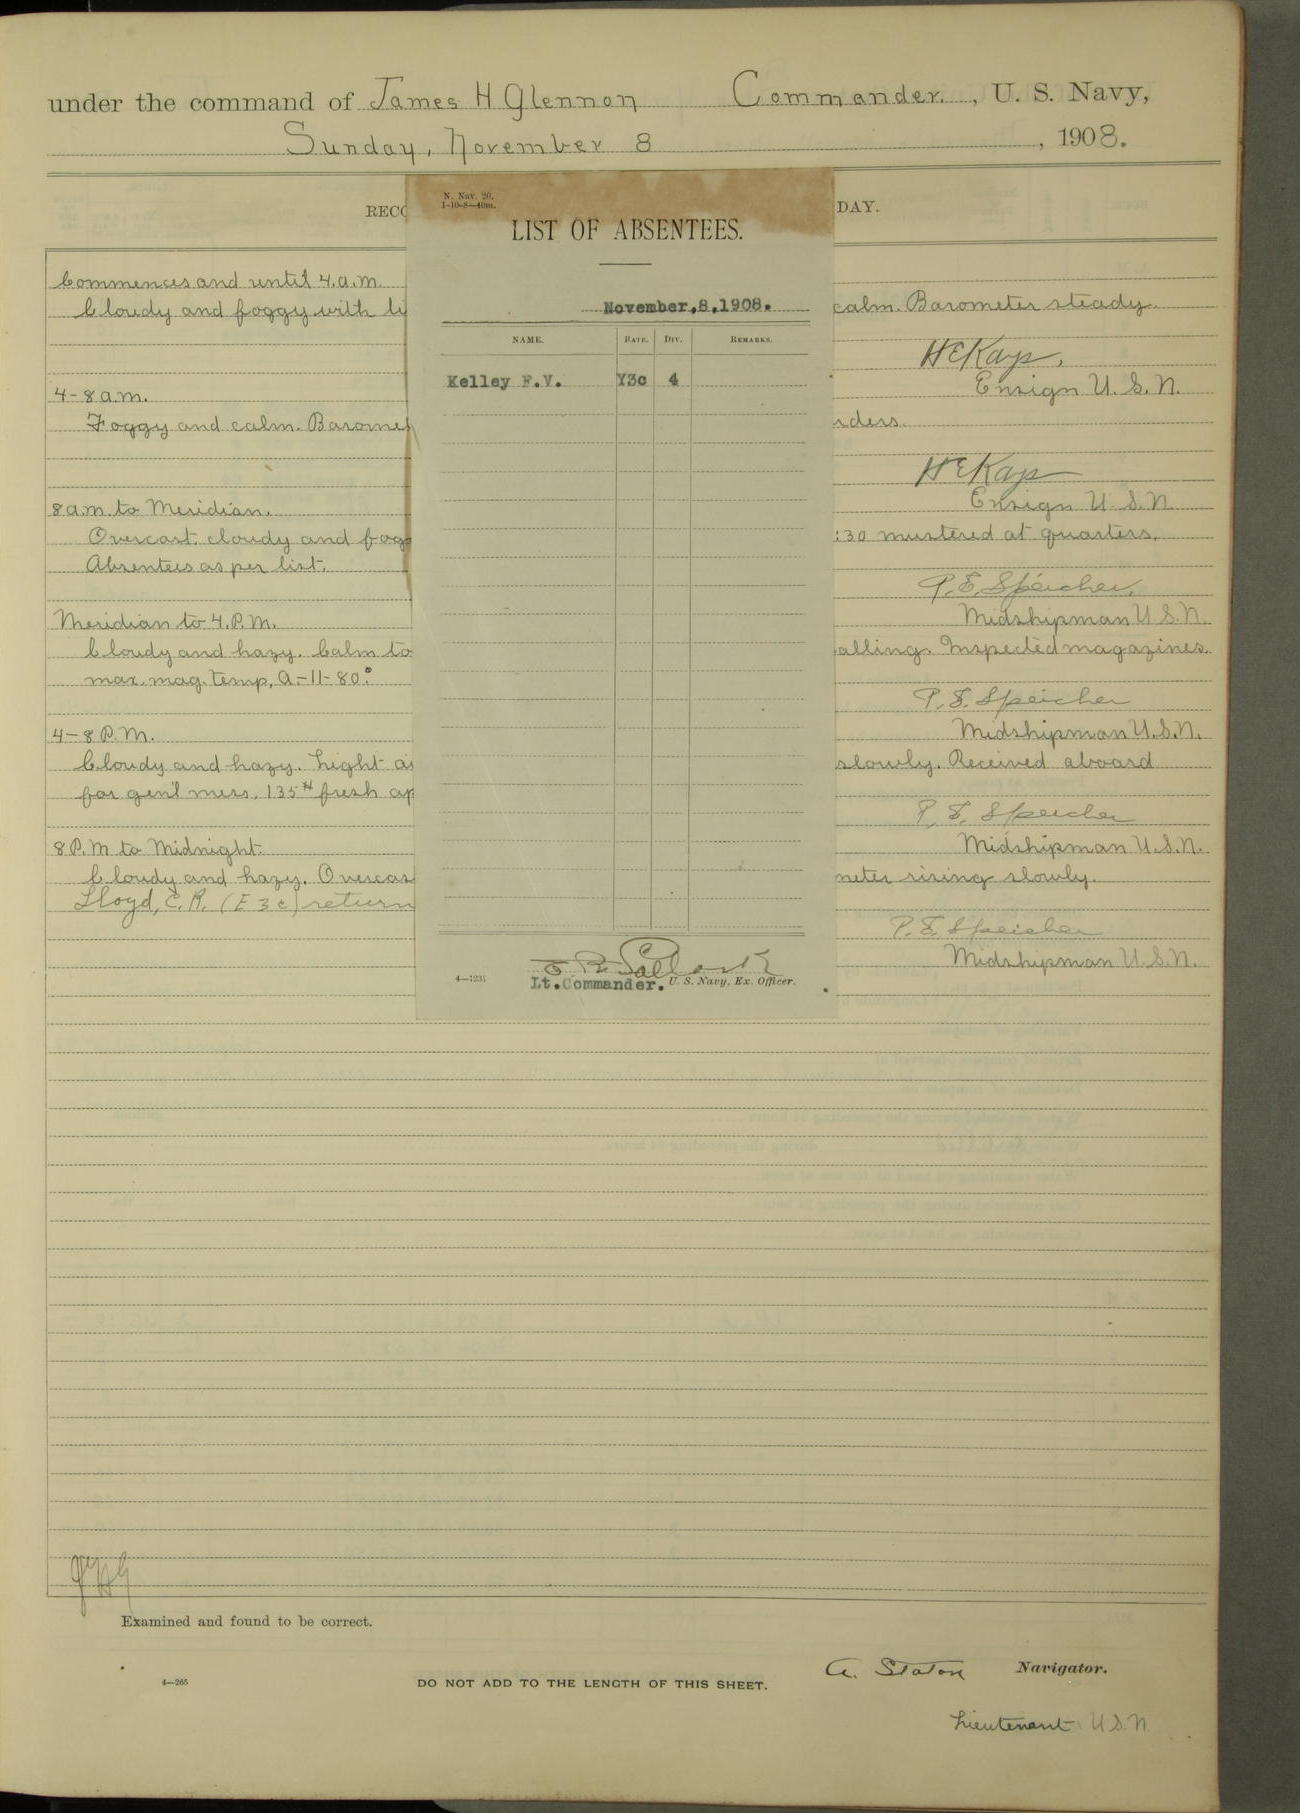 under the command of James H Glennon Commander. , U. S. Navy,
Sunday, November 8 , 1908.
RECO DAY.
N. Nav. 20.
1-10-8—40m.
LIST OF ABSENTEES.
November,8,1908.
NAME. RATE. DIV. REMARKS.
Kelley F.V. Y3c 4
Lt.Commander. U. S. Navy, Ex. Officer.
4—1231
Commences and until 4.a.m.
Cloudy and foggy with li calm. Barometer steady.
HEKays,
Ensign U.S.N.
4-8 a.m.
Foggy and calm. Baromet rders.
HEKays
Ensign U.S.N.
8 a.m. to Meridian.
Overcast, cloudy and fogg :30 mustered at quarters.
Absentees as per list.
P.E. Speicher,
Midshipman U.S.N.
Meridian to 4.P.M.
Cloudy and hazy. Calm to alling. Inspected magazines.
max. mag. temp, A-11-80°
P.E. Speicher
Midshipman U.S.N.
4-8 P.M.
Cloudy and hazy. Light ai slowly. Received aboard
for gen'l mess, 135# fresh ap
P.E. Speicher
Midshipman U.S.N.
8 P.M to Midnight.
Cloudy and hazy. Overcas meter rising slowly.
Lloyd, C.R. (E 3c) return
P.E. Speicher
Midshipman U.S.N.
JHG
Examined and found to be correct.
A. Staton Navigator.
4—265 DO NOT ADD TO THE LENGTH OF THIS SHEET.
Lieutenant U.S.N.